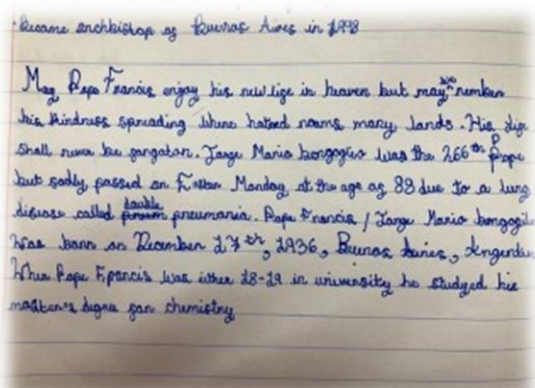 · Became archbishop of Buenos Aires in 1998
May Pope Francis enjoy his new life in heaven but may we remben
his kindness spreading where hatred roams many lands. His life
shall never be forgotan. Jorge Mario bongoglio was the 266th Pope
but sadly passed on Easter Monday at the age of 88 due to a lung
disease called double pneumonia. Pope Francis / Jorge Mario bongogli
Was born on December 17th, 1936, Buenos Aires, Argentin
When Pope Francis was either 18-19 in university he studyed his
master's degree for chemistry